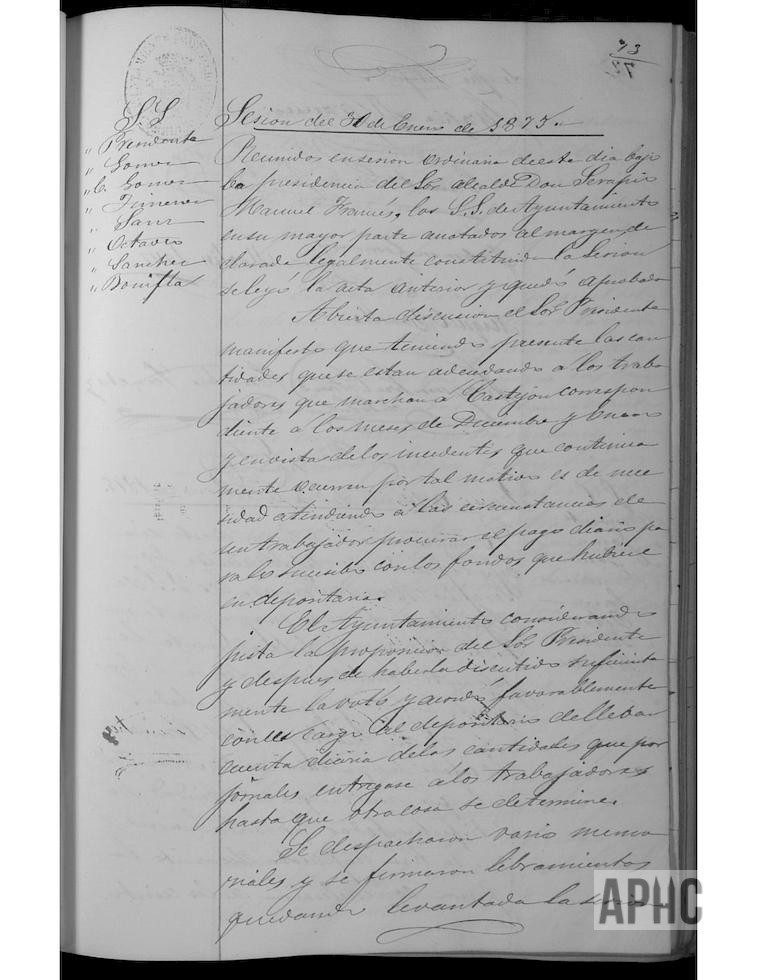 73
S. S.
" Presidente
" Gomez
" C. Gomez
" Jimenez
" Sanz
" Octavio
" Sanchez
" Bonifta
Sesion del 31 de Enero de 1875.
Reunidos en sesion ordinaria de este dia bajo
la presidencia del Sor. Alcalde Don Serapio
Manuel Francés, los S. S. de Ayuntamiento
en su mayor parte anotados al margen, de
clarada legalmente constituida la Sesion
se leyó la acta anterior y quedó aprobada
Abierta discusion el Sor. Presidente
manifestó que teniendo presente las can
tidades que se estan adeudando a los traba
jadores que marchan a Castejon correspon
diente a los meses de Diciembre y Enero
y en vista de los incidentes que continua
mente ocurren por tal motivo es de nece
sidad atendiendo a las circunstancias de
un trabajador procurar el pago diario pa
ra lo sucesibo con los fondos que hubiere
en depositaria.
El Ayuntamiento considerando
justa la proposicion del Sor. Presidente
y despues de haberla discutido suficiente
mente la votó y acordó favorablemente
con el cargo al depositario de llebar
cuenta diaria de las cantidades que por
jornales entregase á los trabajadores
hasta que otra cosa se determine.
Se despacharon vario memo
riales y se firmaron libramientos
quedando levantada la sesion.
APHC